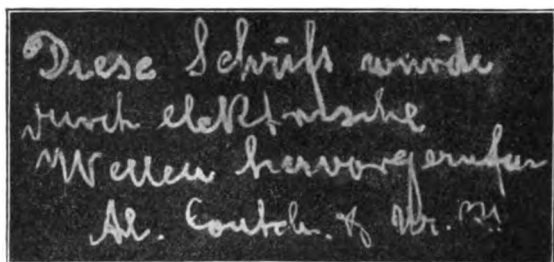 Diese Schrift wurde
durch elektrische
Wellen hervorgerufen